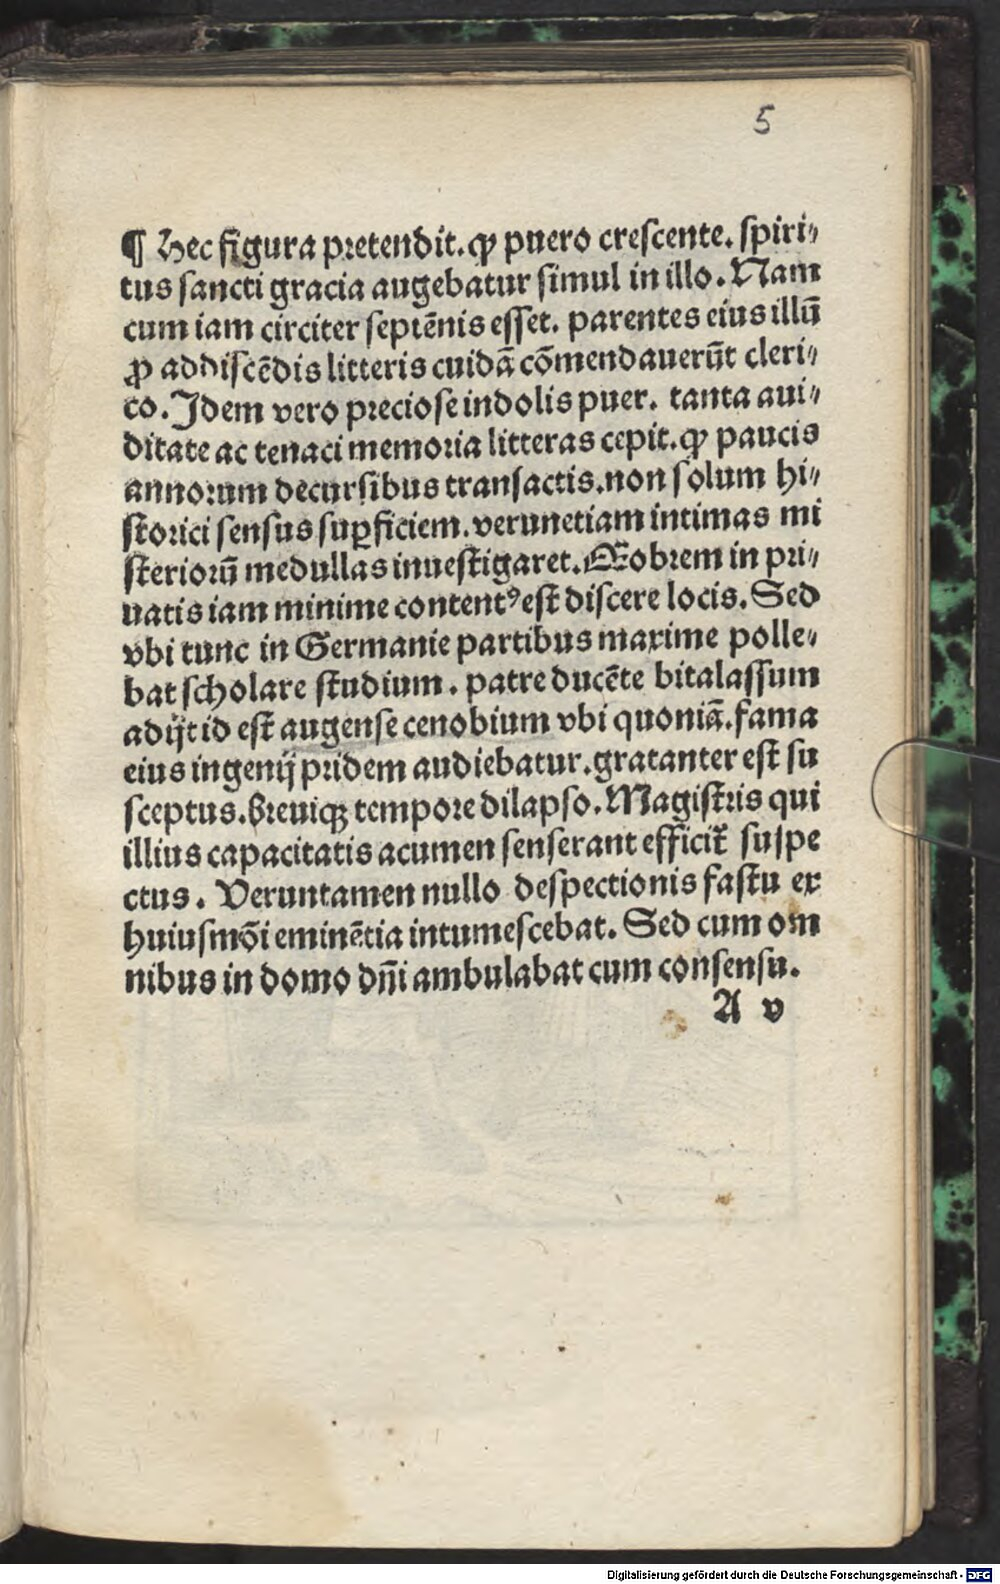 5
¶ Hec figura pretendit. ꝙ puero crescente. spiri⸗
tus sancti gracia augebatur simul in illo. Nam
cum iam circiter septēnis esset. parentes eius illū
ꝓ addiscēdis litteris cuidā cōmendauerūt cleri⸗
co. Idem vero preciose indolis puer. tanta aui⸗
ditate ac tenaci memoria litteras cepit. ꝙ paucis
annorum decursibus transactis. non solum hi⸗
storici sensus suꝑficiem. verunetiam intimas mi
steriorū medullas inuestigaret. Eobrem in pri⸗
uatis iam minime contentꝰ est discere locis. Sed
vbi tunc in Germanie partibus maxime polle⸗
bat scholare studium. patre ducēte bitalassum
adijt id est augense cenobium vbi quoniā. fama
eius ingenij pridem audiebatur. gratanter est su
sceptus. Breuiqꝫ tempore dilapso. Magistris qui
illius capacitatis acumen senserant efficit᷑ suspe
ctus. Veruntamen nullo despectionis fastu ex
huiusmōi eminētia intumescebat. Sed cum om
nibus in domo dn̄i ambulabat cum consensu.
A v
Digitalisierung gefördert durch die Deutsche Forschungsgemeinschaft - DFG